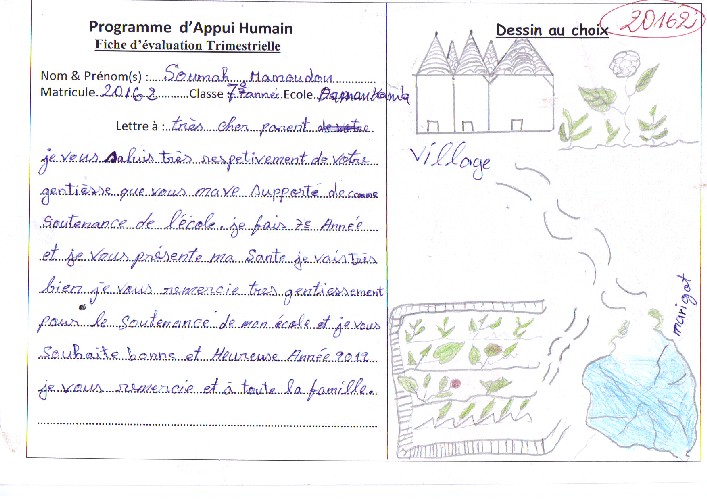 Programme d'Appui Humain
Fiche d'évaluation Trimestrielle
Nom & Prénom(s) : Soumah Mamadou
Matricule 20162 Classe 7e année Ecole
Lettre à : très cher parent de votre
je vous saluis très respetivement de votre
gentièsse que vous mave supporté de comme
Soutenance de l'école. je fais 7e Année
et je vous présente ma Sante je vais très
bien je vous remercie très gentiessement
pour le Soutenance de mon école et je vous
Souhaite bonne et Heureuse Année 2012
je vous remercie et à toute la famille.
Dessin au choix
20162
village
marigot